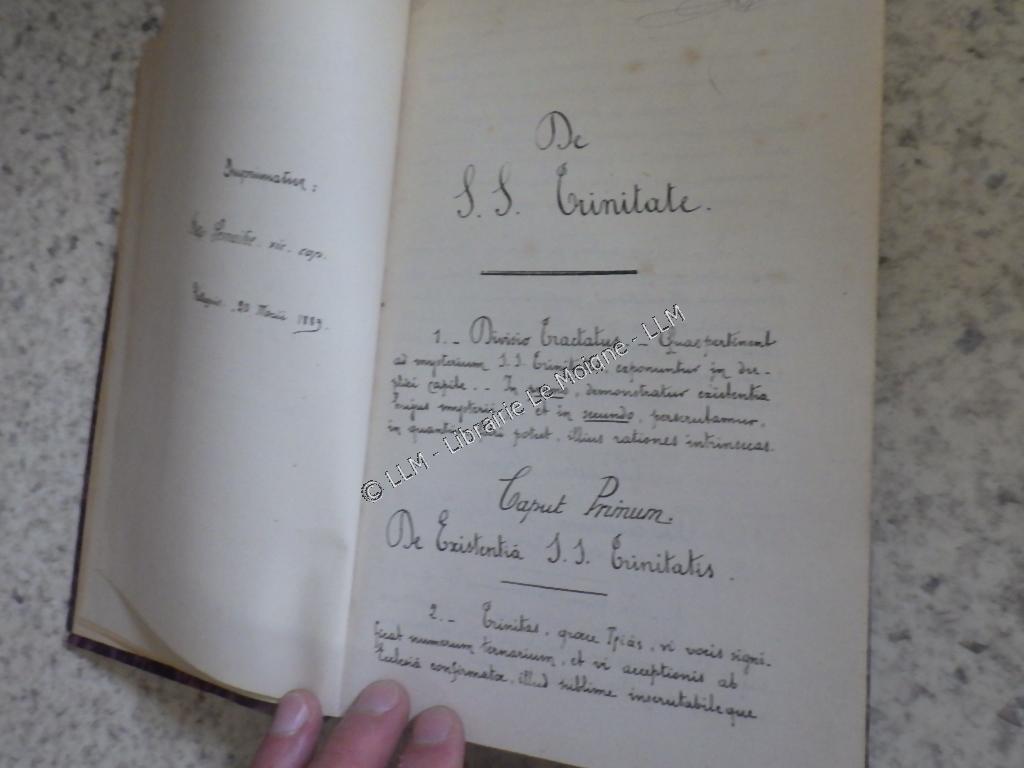 Imprimatur :
vic. cap.
20 Martii 1889
De
S. S. Trinitate.
1. _ Divisio Tractatus _ Quae pertinent
ad mysterium S. S. Trinitatis exponuntur in du-
plici capite. _ In primo, demonstratur existentia
hujus mysterii, et in secundo, perscrutamur,
in quantum potest, illius rationes intrinsecas.
Caput Primum.
De Existentiâ S. S. Trinitatis.
2. _ Trinitas, graece Τριάς, vi vocis signi-
ficat numerum ternarium, et vi acceptionis ab
Ecclesiâ confirmatae, illud sublime inscrutabileque
© LLM - Librairie Le Moigne - LLM